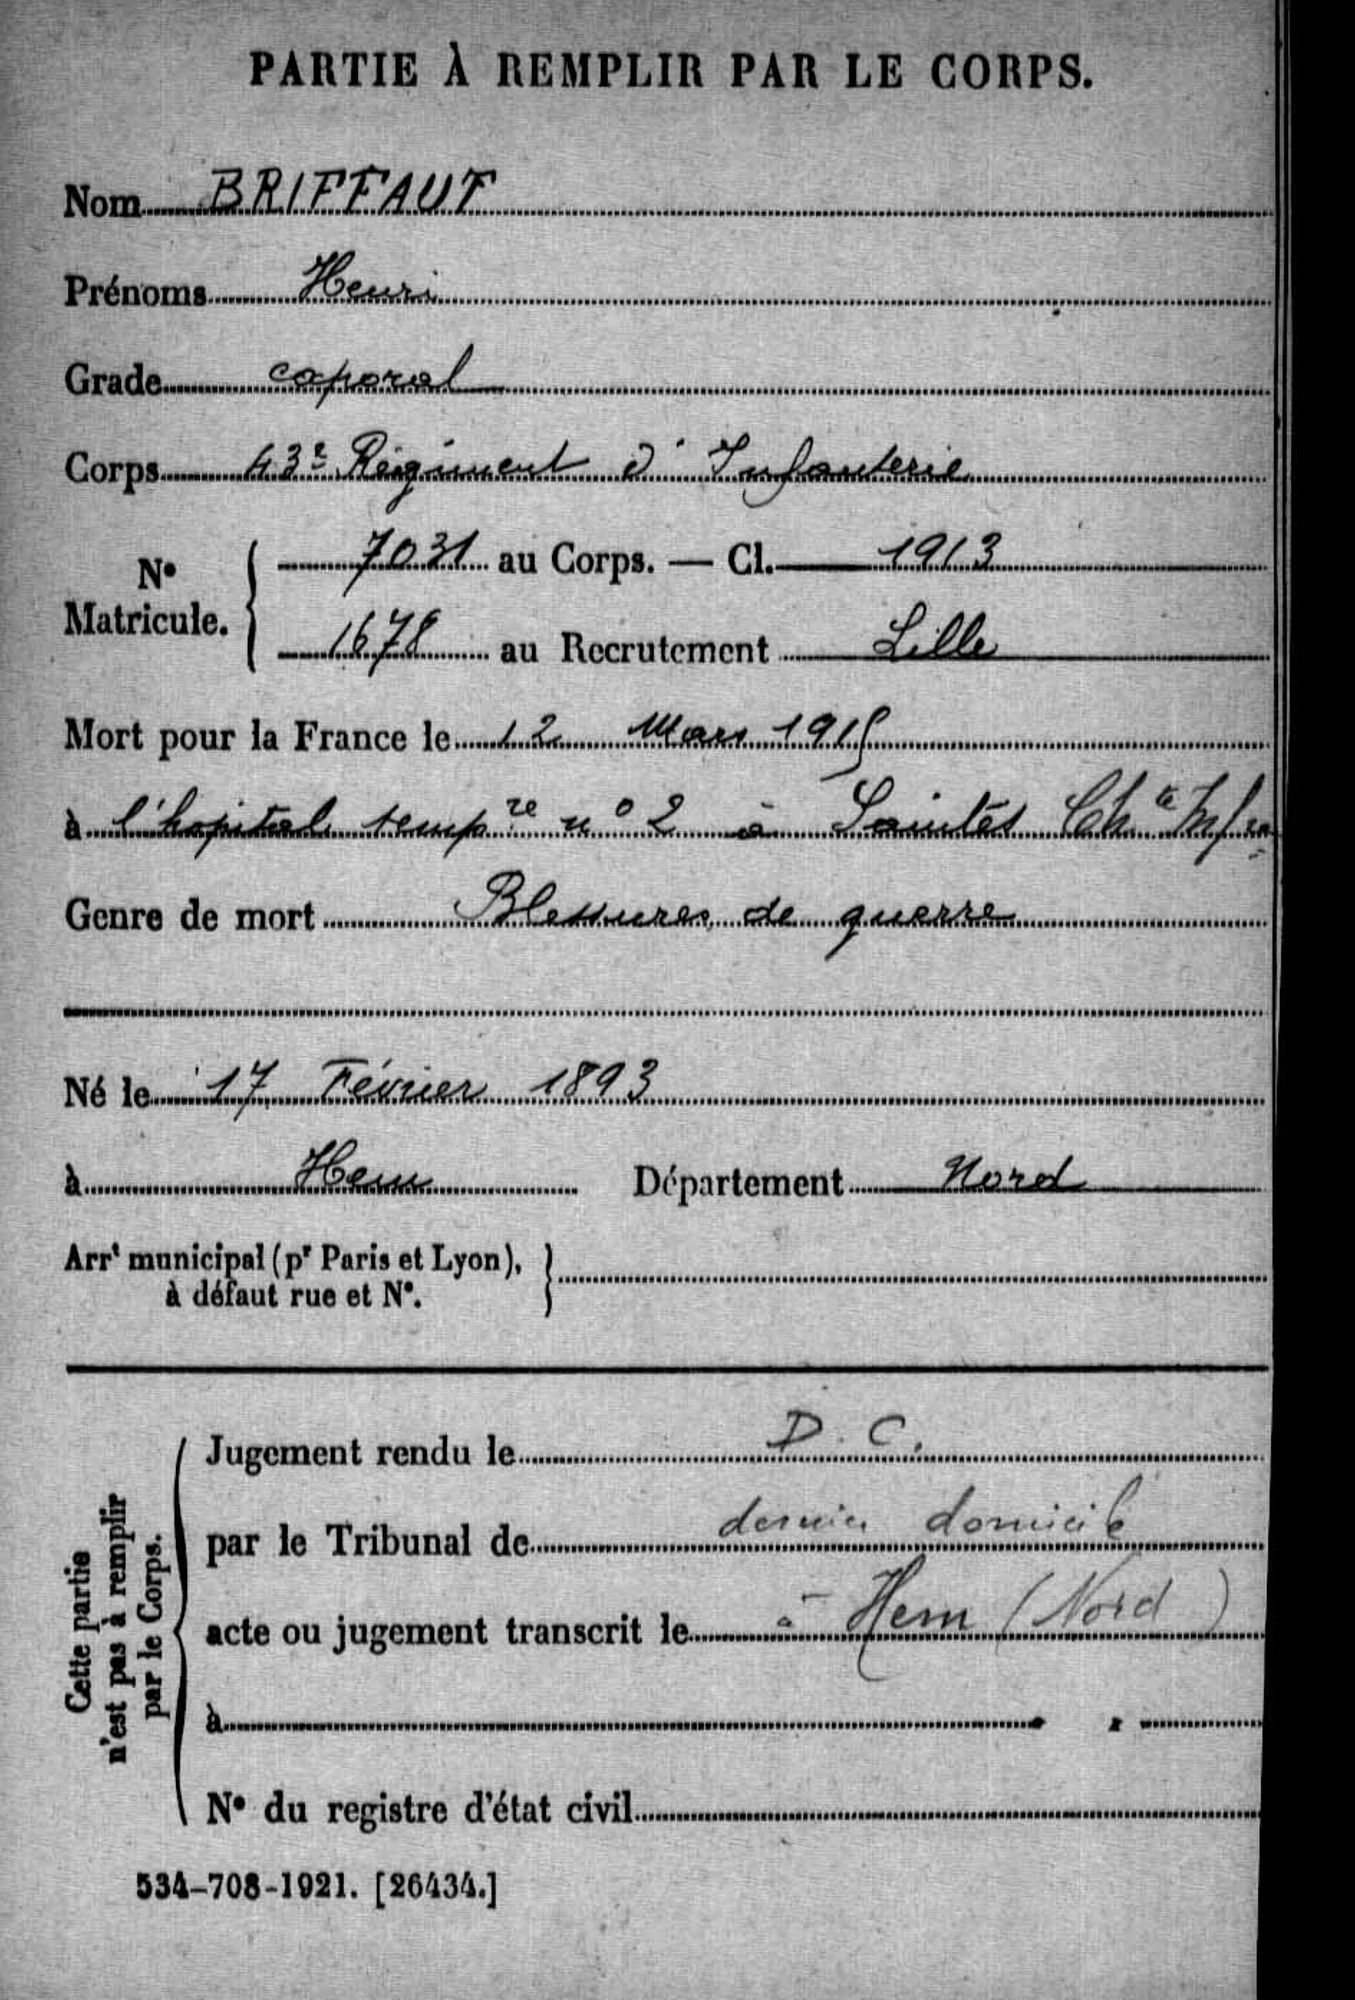 PARTIE À REMPLIR PAR LE CORPS.
Nom BRIFFAUT
Prénoms Henri
Grade caporal
Corps 43e Régiment d'Infanterie
N° Matricule. 7031 au Corps. — Cl. 1913
1678 au Recrutement Lille
Mort pour la France le 12 Mars 1915
à l'hopital tempre n° 2 à Saintes Chte Infre
Genre de mort Blessures de guerre
Né le 17 Février 1893
à Hem Département Nord
Arrt municipal (pr Paris et Lyon),
à défaut rue et N°.
Cette partie
n'est pas à remplir
par le Corps.
Jugement rendu le D. C.
par le Tribunal de dernier domicile
acte ou jugement transcrit le à Hem (Nord)
à
N° du registre d'état civil
534-708-1921. [26434.]